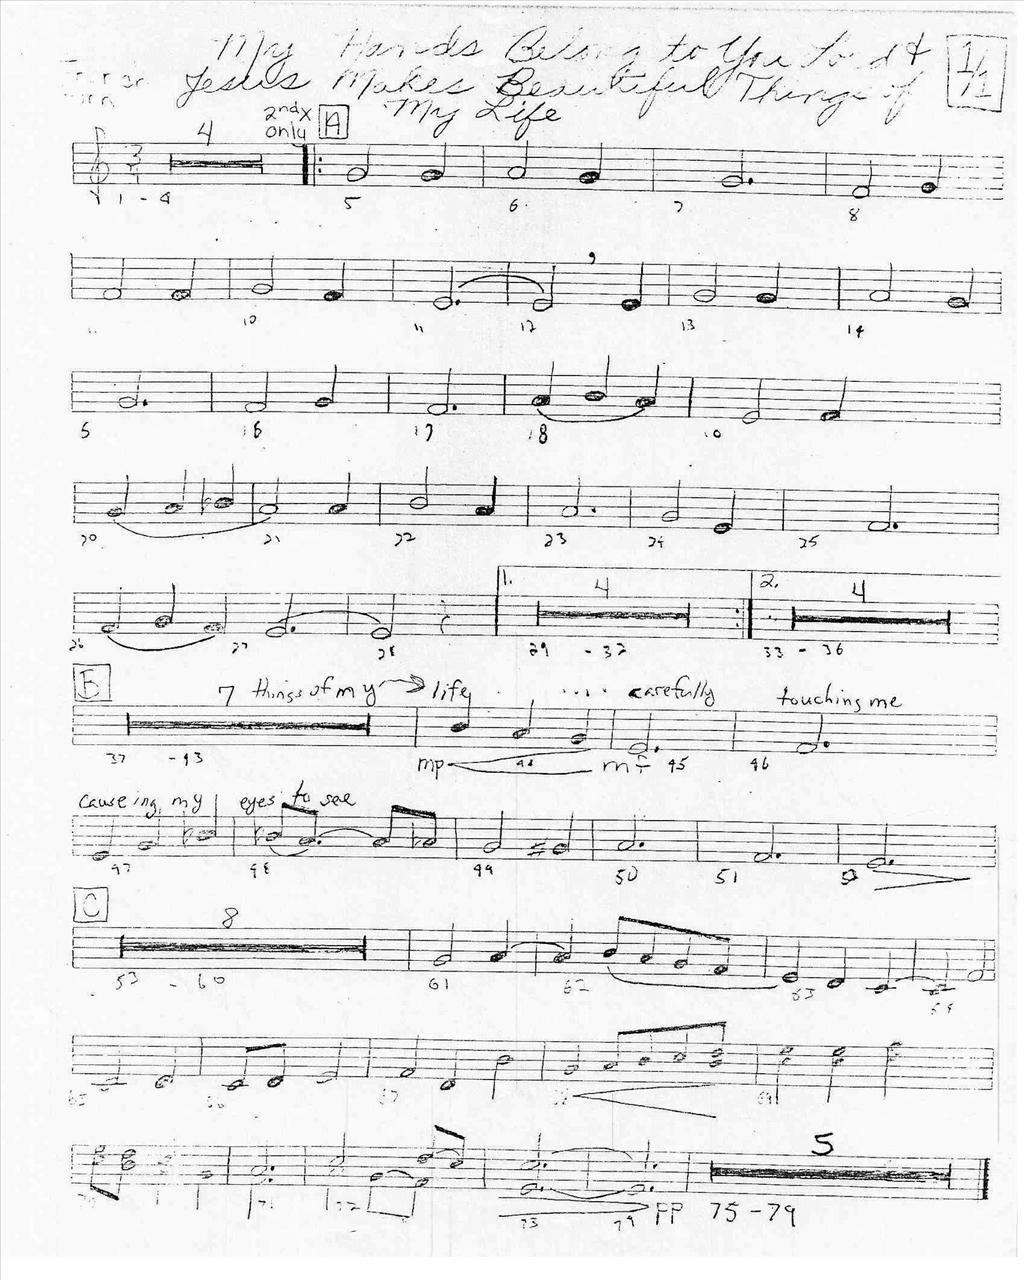 My Hands Belong to You Lord &
Jesus Makes Beautiful Things of
My Life
1/1
2nd X
only
A
4
1 - 4
5 6 7 8
10 11 12 13 14
5 16 17 18 19
20 21 22 23 24 25
1. 4 2. 4
26 27 28 29 - 32 33 - 36
B
7 things of my life .... carefully touching me
37 - 43 mp 44 mf 45 46
causeing my eyes to see
47 48 49 50 51 52
C
8
53 - 60 61 62 63 64
65 66 67 68 69
5
71 72 73 74 pp 75 - 79